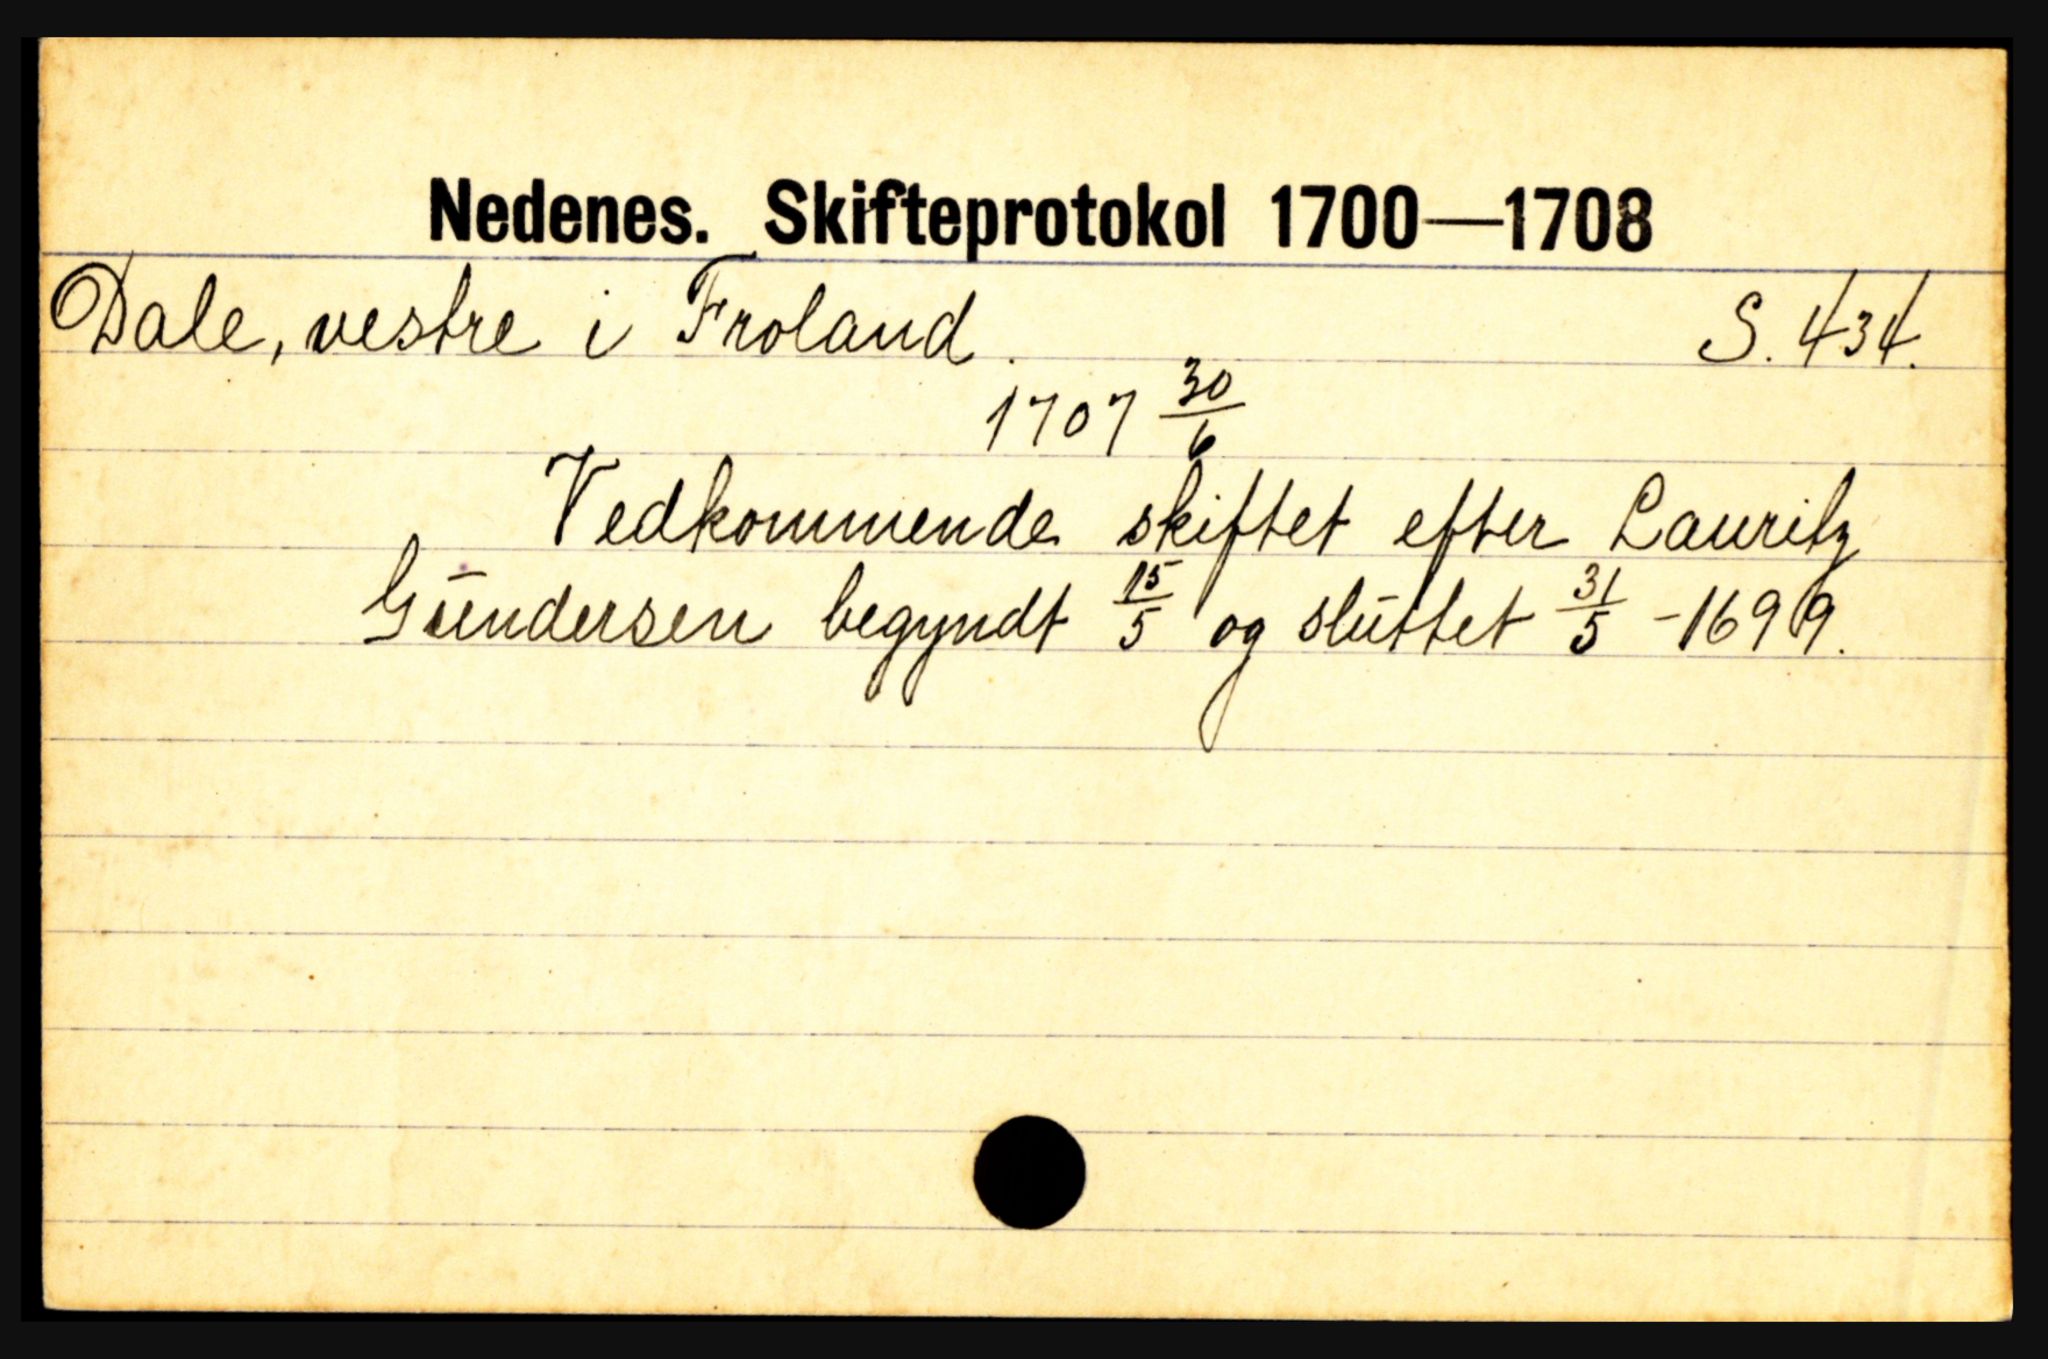 Nedenes. Skifteprotokol 1700—1708
Dale, vestre i Froland. S. 434.
1707 30/6
Vedkommende skiftet efter Lauritz
Gundersen begyndt 15/5 og sluttet 31/5 - 1699.